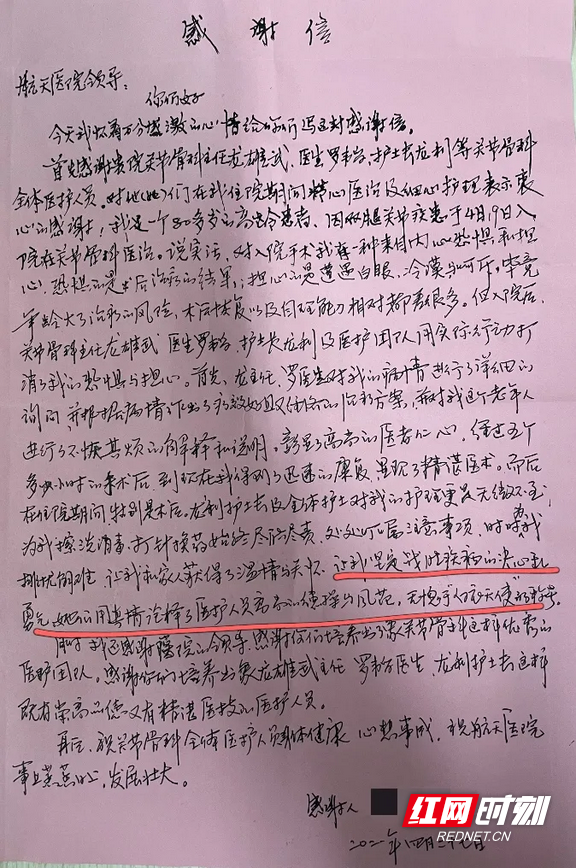 感谢信
航天医院领导:
你们好
今天我怀着万分感激的心情给你们写这封感谢信。
首先感谢贵院关节骨科主任龙雄武、医生罗 、护士长龙利等关节骨科
全体医护人员。对他(她)们在我住院期间精心医治及细心护理表示衷
心的感谢,我是一个80多岁的高龄患者,因双腿关节疾患于4月19日入
院在关节骨科医治。说实话,对入院手术我有一种来自内心恐惧和担
心,恐惧的是术后治疗的结果,担心的是遭遇白眼、冷漠与呵斥。毕竟
年龄大了治疗的风险,术后恢复以及自理能力相对都差很多。但入院后
关节骨科主任龙雄武 医生罗 、护士长龙利及医护团队用实际行动打
消了我的恐惧与担心。首先,龙主任、罗医生对我的病情进行了详细的
询问,并根据病情作出了 的治疗方案,并对我这个老年人
进行了不恹其烦的解释和说明。彰显了高尚的医者仁心,经过五个
多小时的手术后,到现在我得到了迅速的康复,呈现了精湛医术。而后
在住院期间,特别是术后。龙利护士长及全体护士对我的护理更是无微不至,
为我擦洗消毒、打针换药始终尽陪尽责,处处叮嘱注意事项,时 我
排忧解难 让我和家人获得了温情与关怀。让我坚定战胜疾病的决心和
勇气,她们用真情诠释了医护人员高尚的德操与风范,无愧于"白衣天使"的称号。
同时我还感谢医院的领导,感谢你们培养出了象关节骨科这样优秀的
医护团队。感谢你们培养出象龙雄武主任 罗 医生、龙利护士长这样
既有崇高品德又有精湛医技的医护人员。
再次,祝关节骨科全体医护人员身体健康 心想事成,祝航天医院
事业蒸蒸日上,发展壮大。
感谢人
202 年四月二十 日
红网时刻
REDNET.CN